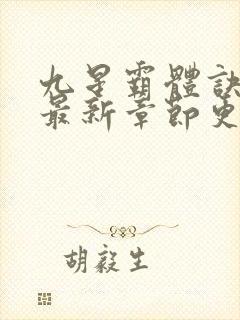 九星霸體訣
最新章節更
胡毅生